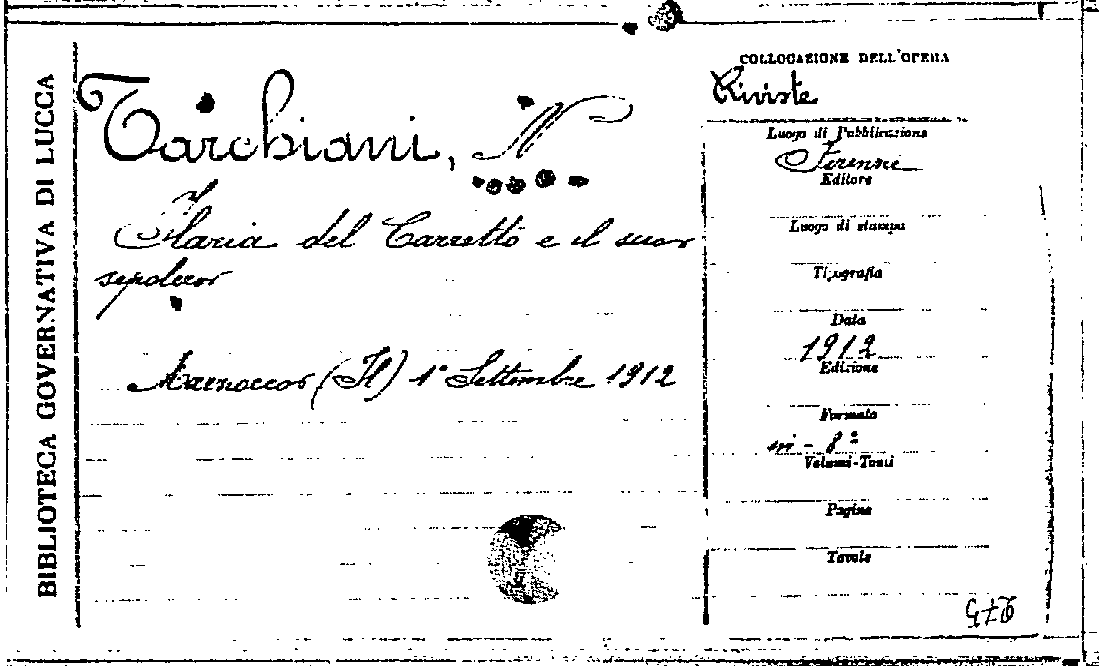 BIBLIOTECA GOVERNATIVA DI LUCCA
Tarchiani, N
Ilaria del Carretto e il suo
sepolcro
Marzocco (Il) 1° Settembre 1912
COLLOCAZIONE DELL'OPERA
Riviste
Luogo di Pubblicazione
Firenze
Editore
Luogo di stampa
Tipografia
Data
1912
Edizione
Formato
in-8º
Volumi-Tomi
Pagine
Tavole